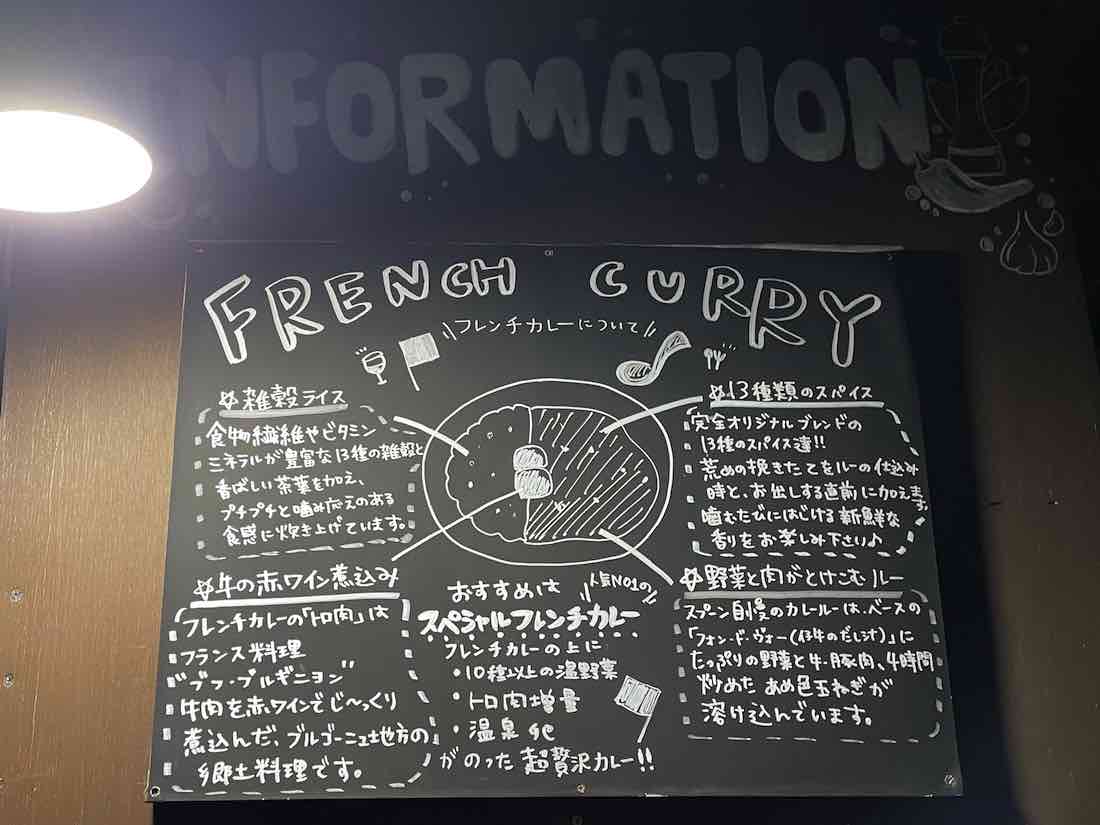 INFORMATION
FRENCH CURRY
フレンチカレーについて
☆雑穀ライス
食物繊維やビタミン
ミネラルが豊富な13種の雑穀と
香ばしい茶葉を加え、
プチプチと噛み応えのある
食感に炊き上げています。
☆13種類のスパイス
完全オリジナルブレンドの
13種のスパイス達!!
荒めの挽きたてをルーの仕込み
時と、お出しする直前に加えます。
噛むたびにはじける新鮮な
香りをお楽しみ下さい♪
☆牛の赤ワイン煮込み
フレンチカレーの「トロ肉」は
フランス料理
"ブフ・ブルギニヨン"
牛肉を赤ワインでじ〜っくり
煮込んだ、ブルゴーニュ地方の
郷土料理です。
おすすめは
人気NO1の
スペシャルフレンチカレー
フレンチカレーの上に
・10種以上の温野菜
・トロ肉増量
・温泉
がのった超贅沢カレー!!
☆野菜と肉がとけこむルー
スプーン自慢のカレールーは、ベースの
「フォン・ド・ヴォー(仔牛のだし汁)」に
たっぷりの野菜と牛・豚肉、4時間
炒めたあめ色玉ねぎが
溶け込んでいます。